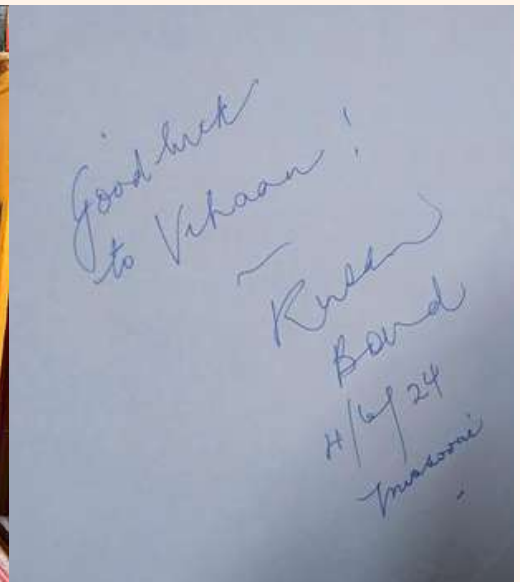 Good luck
to Vihaan !
— Ruskin
Bond
4/6/24
Mussoorie